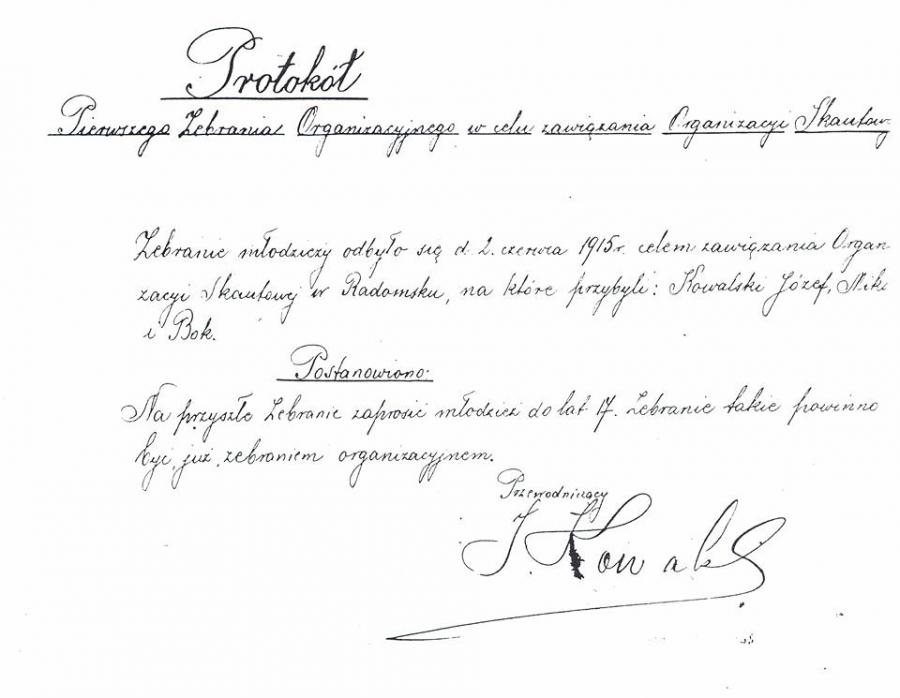 Protokół
Pierwszego Zebrania Organizacyjnego w celu zawiązania Organizacyi Skautow
Zebranie młodzieży odbyło się d. 2. czerwca 1915 r. celem zawiązania Organ
zacyi Skautowej w Radomsku, na które przybyli: Kowalski Józef, Mik
i Bok.
Postanowiono:
Na przyszłe Zebranie zaprosić młodzież do lat 17. Zebranie takie powinno
być już zebraniem organizacyjnem.
Przewodniczący
J. Kowalski